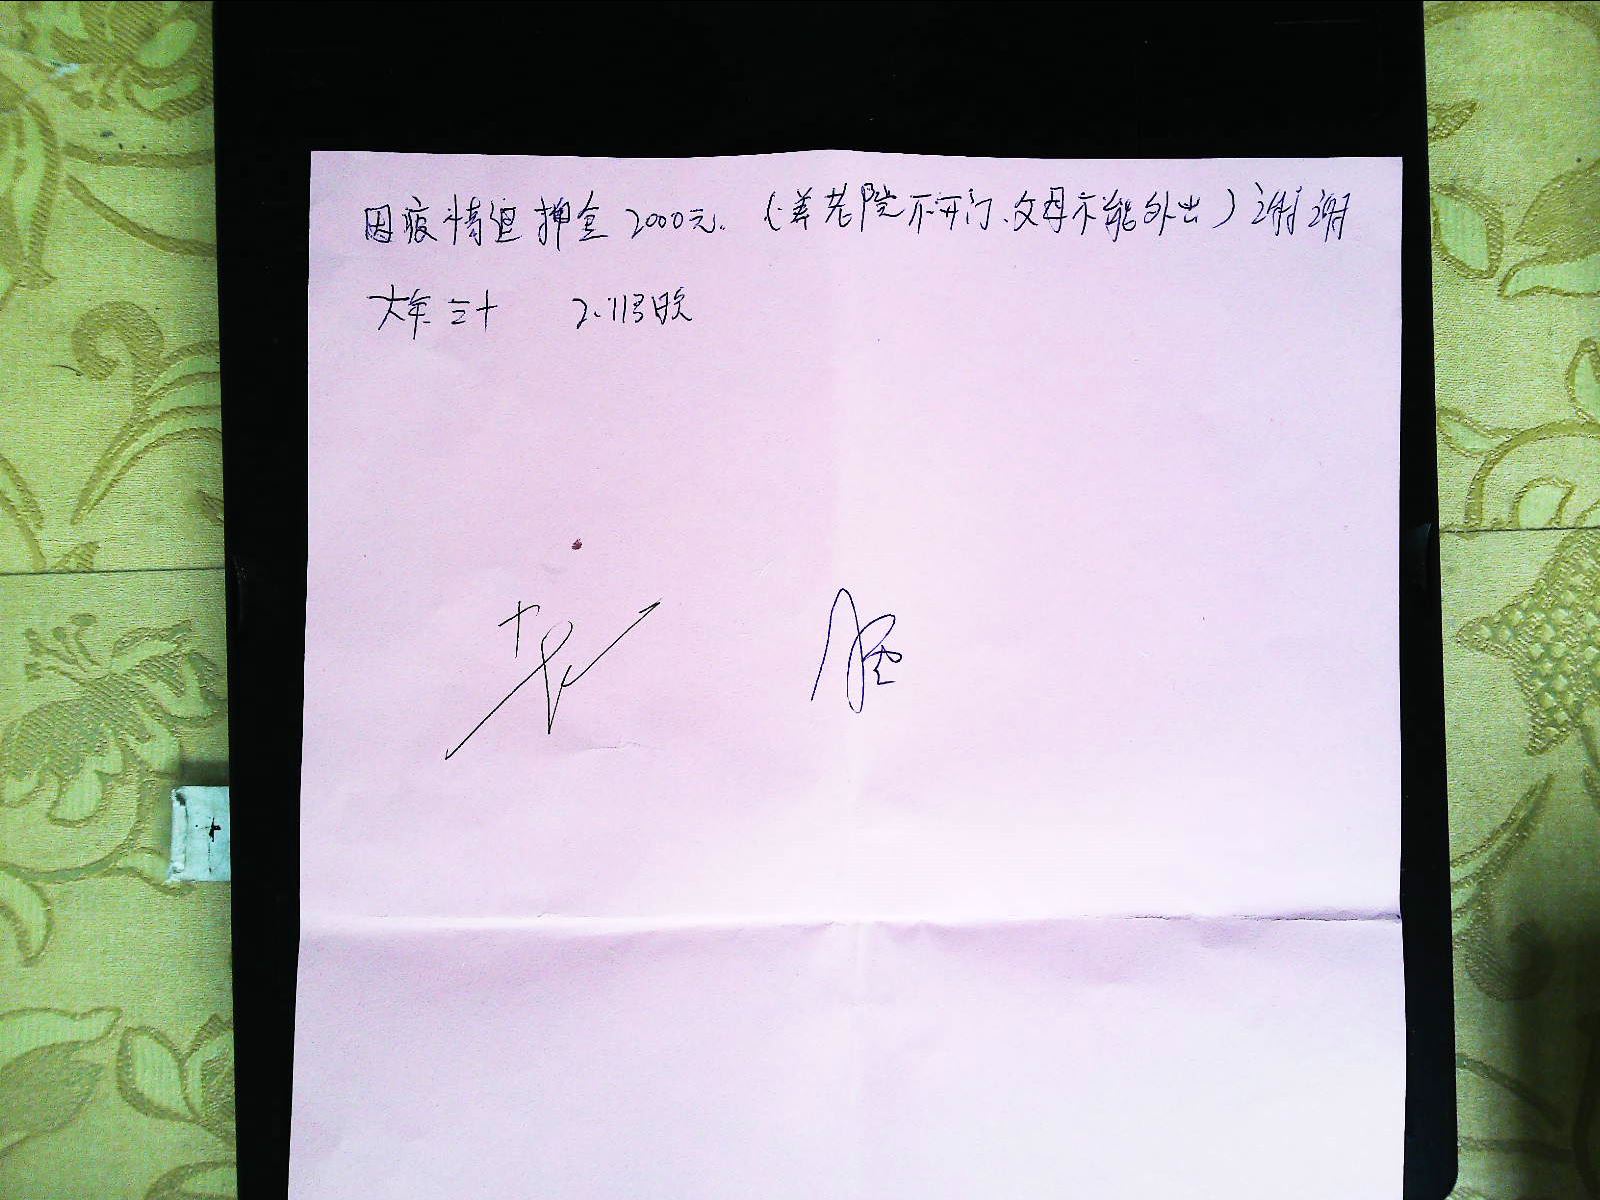 因疫情退押金2000元.(养老院不开门、父母不能外出)谢谢
大年三十 2.11号晚